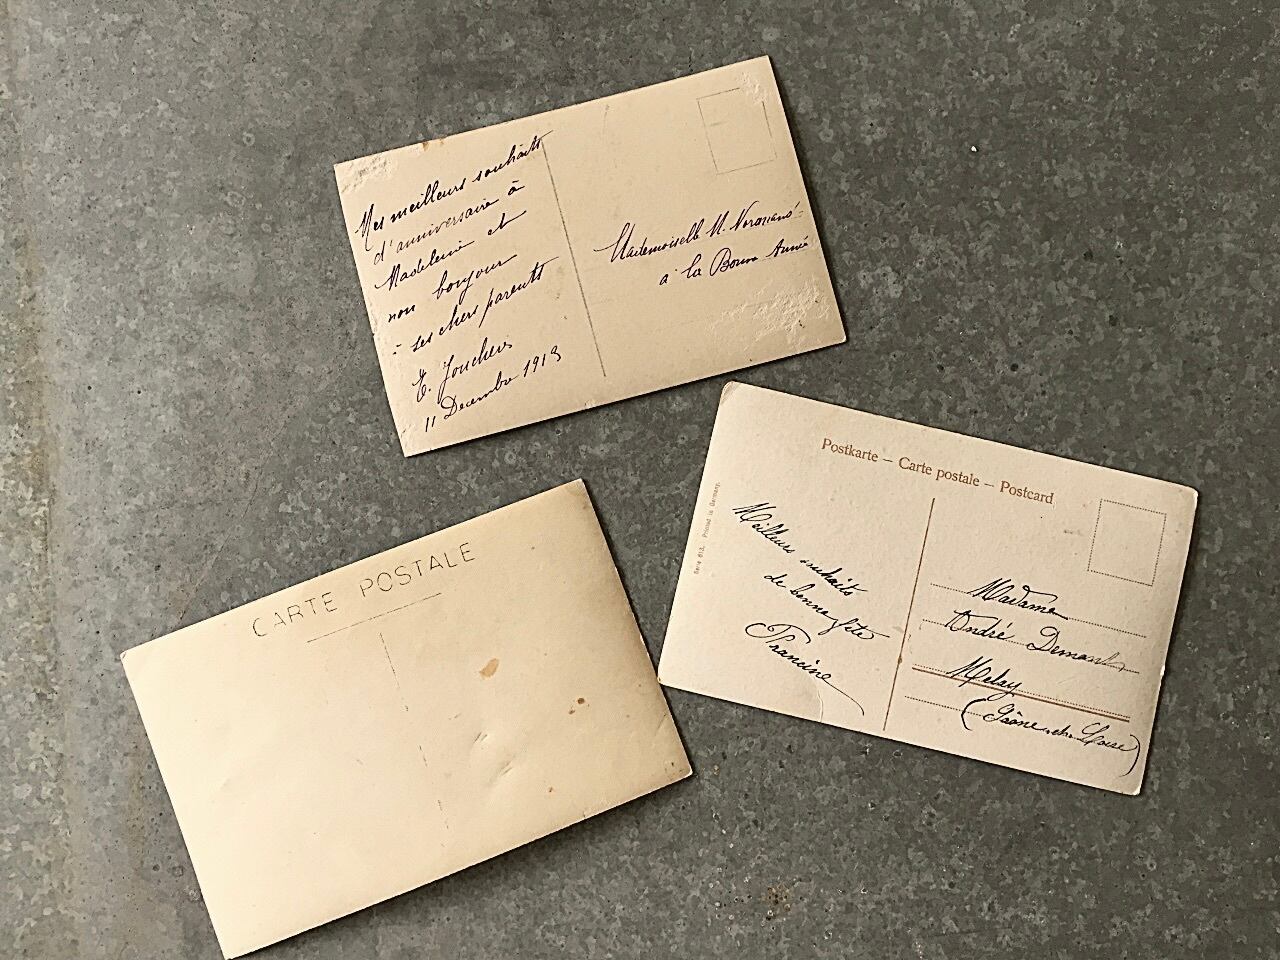 Mes meilleurs souhaits
d'anniversaire à
Madeleine et
mon bonjour
à ses chers parents
11 Decembre 1913
Mademoiselle M.
à la Bonne Année
Postkarte – Carte postale – Postcard
Serie 613. Printed in Germany.
Meilleurs souhaits
de bonne fête
Francine
Madame
André
Melay
(Saône-et-Loire)
CARTE POSTALE